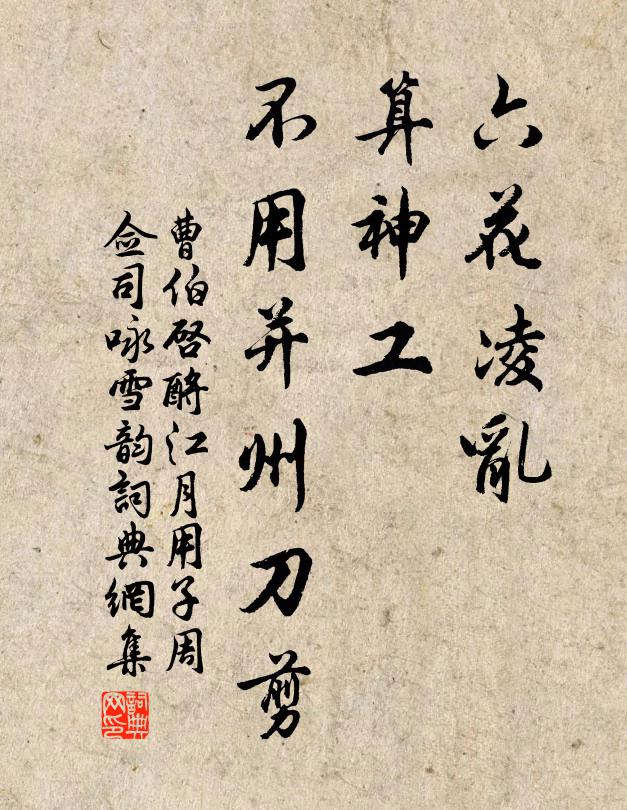 六花凌亂
算神工
不用并州刀剪
曹伯啓酹江月用子周
僉司咏雪韵詞典網集
詞典
网印